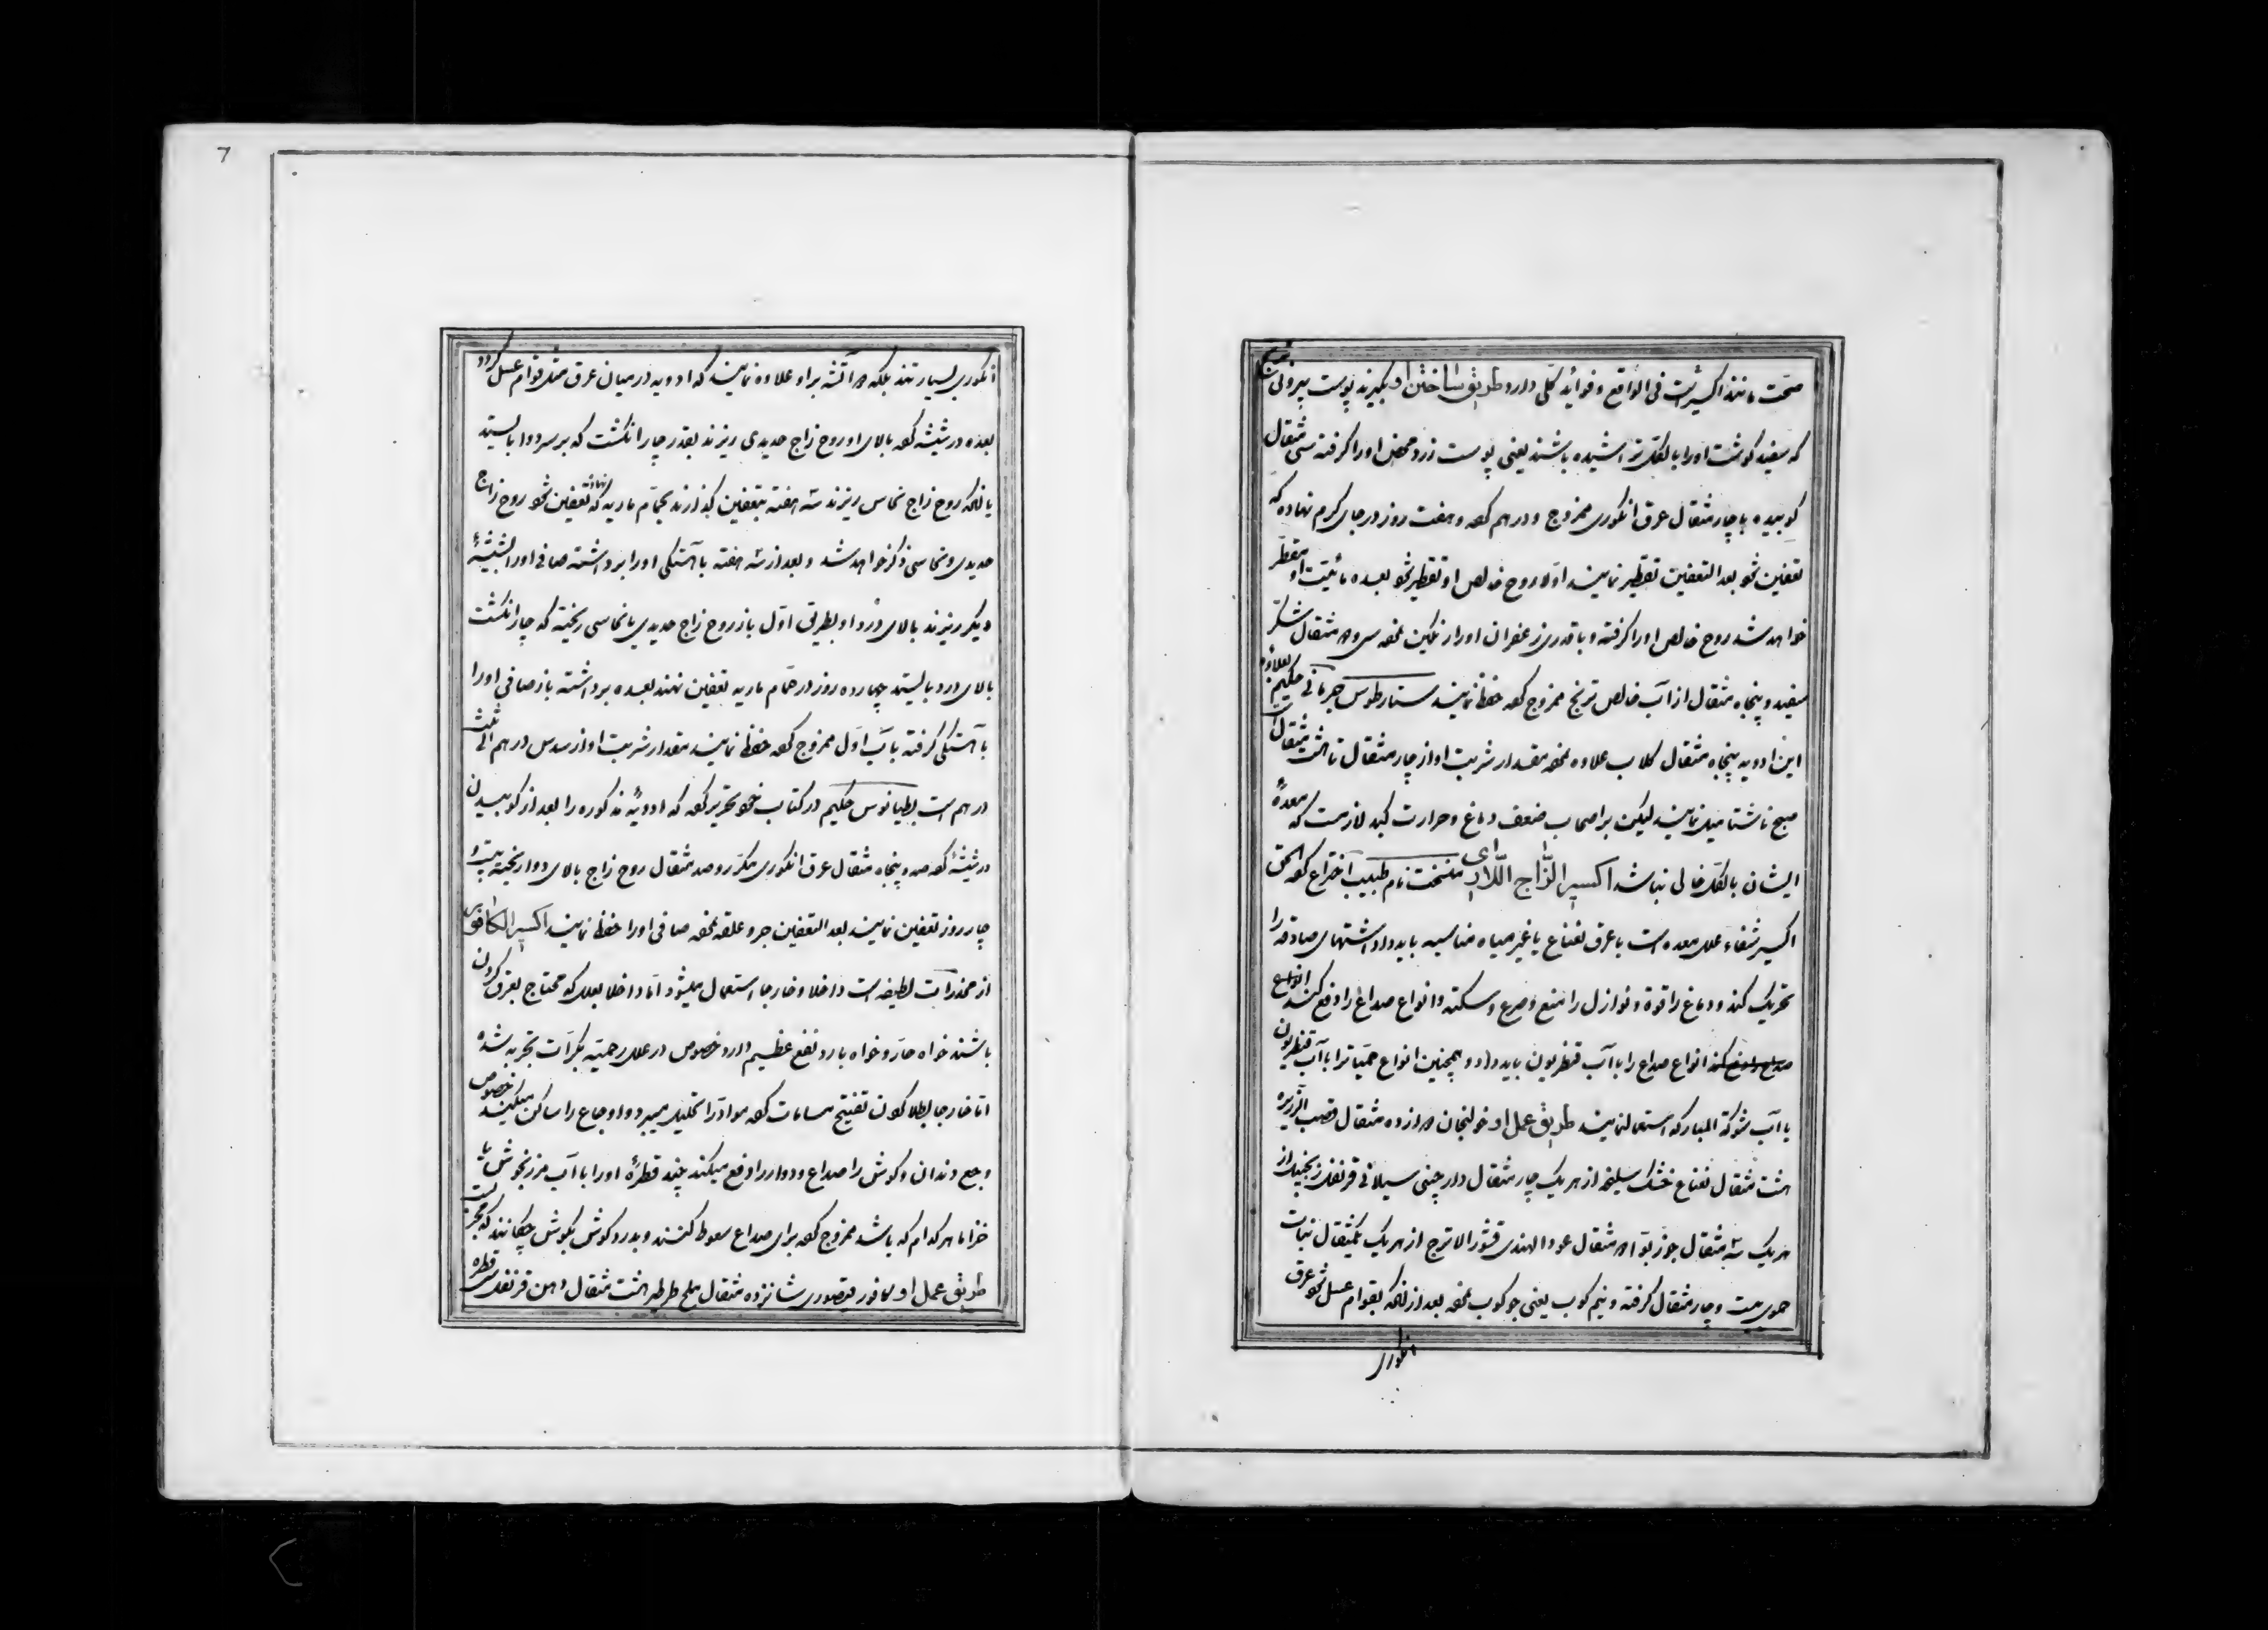 صحت مانند اکسیریست فی الواقع و فواید کلی دارد طریق ساختن او بگیرند پوست بیرونی ترنج
که سفید گوشت او را بالکل تراشیده باشند یعنی پوست زرد محض او را گرفته سی مثقال
کوبیده با چار مثقال عرق انکوری ممزوج و درهم کرده و هفت روز در جای کرم نهاده که
تعفین شود بعد التعفین تقطیر نمایند اولا روح خالص او تقطیر شود بعده مائیت او متقطر
خواهد شد روح خالص او را گرفته و با قدری زعفران او را رنکین نموده سی و مثقال شکر
سفید و پنجاه مثقال از آب خالص ترنج ممزوج کرده حفظ نمایند ستارطوس جرمانی حکیم بعلاوه
این ادویه پنجاه مثقال کلاب علاوه نموده مقدار شربت او از چار مثقال تا هشت مثقال است
صبح ناشتا میل نمایند لیکن بر اصحاب ضعف دماغ و حرارت کبد لازمست که معده
ایشان بالکل خالی نباشد اکسیر الزاج نام طبیب اختراع کرده الحق
اکسیر شفاء علل معده است با عرق نعناع یا غیر میاه مناسبه باید داد اشتهای صادقه را
تحریک کند و دماغ را قوة و نوازل را منع و صرع و سکته و انواع صداع را دفع کند انواع
انواع صداع را با آب قنطریون باید داد و همچنین انواع حمیات را با آب قنطریون
یا آب شوکة المبارکه استعمال نمایند طریق عمل او خولنجان از ده مثقال قصب الذریره
هشت مثقال نعناع خشک سلیخه از هر یک چار مثقال دارچینی سیلانی قرنفل زنجبیل از
هر یک سه مثقال جوز بوا مثقال عود الهندی قشور الاترج از هر یک یکمثقال نبات
حموی بیست و چار مثقال گرفته و نیم کوب یعنی جو کوب نموده بعد از آنکه بقوام عسل شود عرق
انکوری
7
انکوری بسیار تند بلکه آتشه بر او علاوه نمایند که ادویه در میان عرق مثل قوام عسل گردد
بعده در شیشه کرده بالای او روح زاج حدیدی ریزند بقدر چار انکشت که بر سر دوا بایستد
یا آنکه روح زاج نحاس ریزند سه هفته بتعفین بگذارند بحمام ماریه نهاده که تعفین شود روح زاج
حدیدی و نحاسی ذکر خواهد شد و بعد از سه هفته با آهستکی او را برداشته صافی او را بشیشهٔ
دیکر ریزند بالای درد او بطریق اول باز روح زاج حدیدی یا نحاسی ریخته که چار انکشت
بالای درد بایستد چهارده روز در حمام ماریه تعفین نهند بعده برداشته باز صافی او را
با آهستکی گرفته با آب اول ممزوج کرده حفظ نمایند مقدار شربت او از سدس درهم الی ثلث
درهم است بطیانوس حکیم در کتاب خود تحریر کرده که ادویهٔ مذکوره را بعد از کوبیدن
در شیشهٔ کرده صد و پنجاه مثقال عرق انکوری مکرر و صد مثقال روح زاج بالای دوا ریخته بیست و
چار روز تعفین نمایند بعد التعفین جر و علقه نموده صافی او را حفظ نمایند اکسیر الکافوری
از مخدرات لطیفه است داخلا و خارجا استعمال میشود اما داخلا بعللی که محتاج بعرق کردن
باشند خواه حار و خواه بارد نفع عظیم دارد خصوص در علل رحمیه بکرات تجربه شده
اما خارجا بطلا کردن تفتیح مسامات کرده مواد را تحلیل میبرد و اوجاع را ساکن میکند خصوص
وجع دندان و کوش را صداع و دوار را دفع میکند چند قطرهٔ او را با آب مرزنجوش یا
خزاما هر کدام که باشد ممزوج کرده برای صداع سعوط کنند و بدرد کوش بکوش چکانند که مجربست
طریق عمل او کافور قیصوری شانزده مثقال ملح طرطر هشت مثقال دهن قرنفل سی قطره